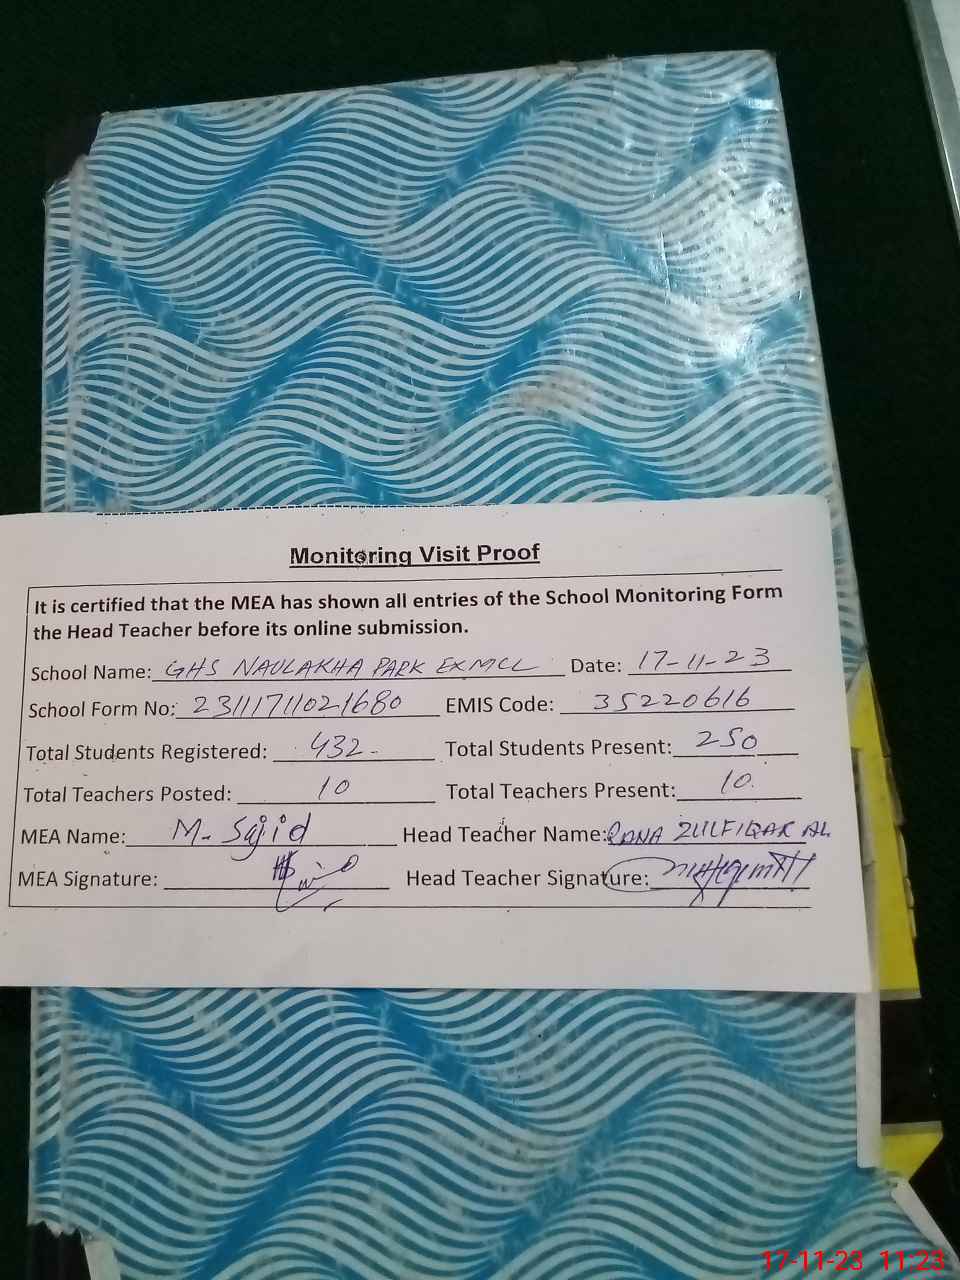 Monitoring Visit Proof
It is certified that the MEA has shown all entries of the School Monitoring Form
the Head Teacher before its online submission.
School Name: GHS NAULAKHA PARK EXMCL Date: 17-11-23
School Form No: 23111711021680 EMIS Code: 35220616
Total Students Registered: 432 Total Students Present: 250
Total Teachers Posted: 10 Total Teachers Present: 10
MEA Name: M. Sajid Head Teacher Name: RANA ZULFIQAR AL
MEA Signature: Head Teacher Signature:
17-11-23 11:23